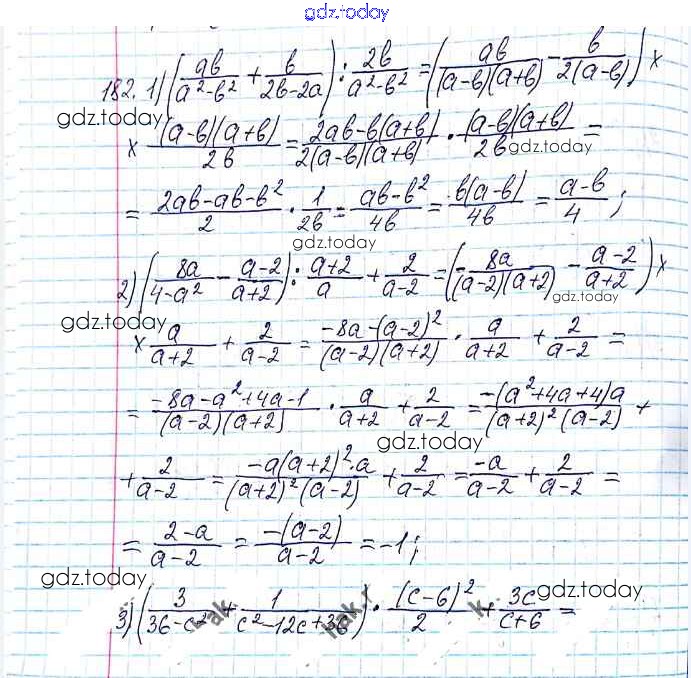 gdz.today
182. 1) (ab/(a²-b²) + b/(2b-2a)) : 2b/(a²-b²) = (ab/((a-b)(a+b)) - b/(2(a-b))) ×
gdz.today
× (a-b)(a+b)/2b = (2ab-b(a+b))/(2(a-b)(a+b)) · (a-b)(a+b)/2b =
gdz.today
= (2ab-ab-b²)/2 · 1/2b = (ab-b²)/4b = b(a-b)/4b = (a-b)/4 ;
gdz.today
2) (8a/(4-a²) - (a-2)/(a+2)) : (a+2)/a + 2/(a-2) = (-8a/((a-2)(a+2)) - (a-2)/(a+2)) ×
gdz.today
× a/(a+2) + 2/(a-2) = (-8a-(a-2)²)/((a-2)(a+2)) · a/(a+2) + 2/(a-2) =
= (-8a-a²+4a-1)/((a-2)(a+2)) · a/(a+2) + 2/(a-2) = -(a²+4a+4)a/((a+2)²(a-2)) +
gdz.today
+ 2/(a-2) = -a(a+2)²·a/((a+2)²(a-2)) + 2/(a-2) = -a/(a-2) + 2/(a-2) =
= (2-a)/(a-2) = -(a-2)/(a-2) = -1 ;
gdz.today
gdz.today
3) (3/(36-c²) + 1/(c²-12c+36)) · (c-6)²/2 + 3c/(c+6) =